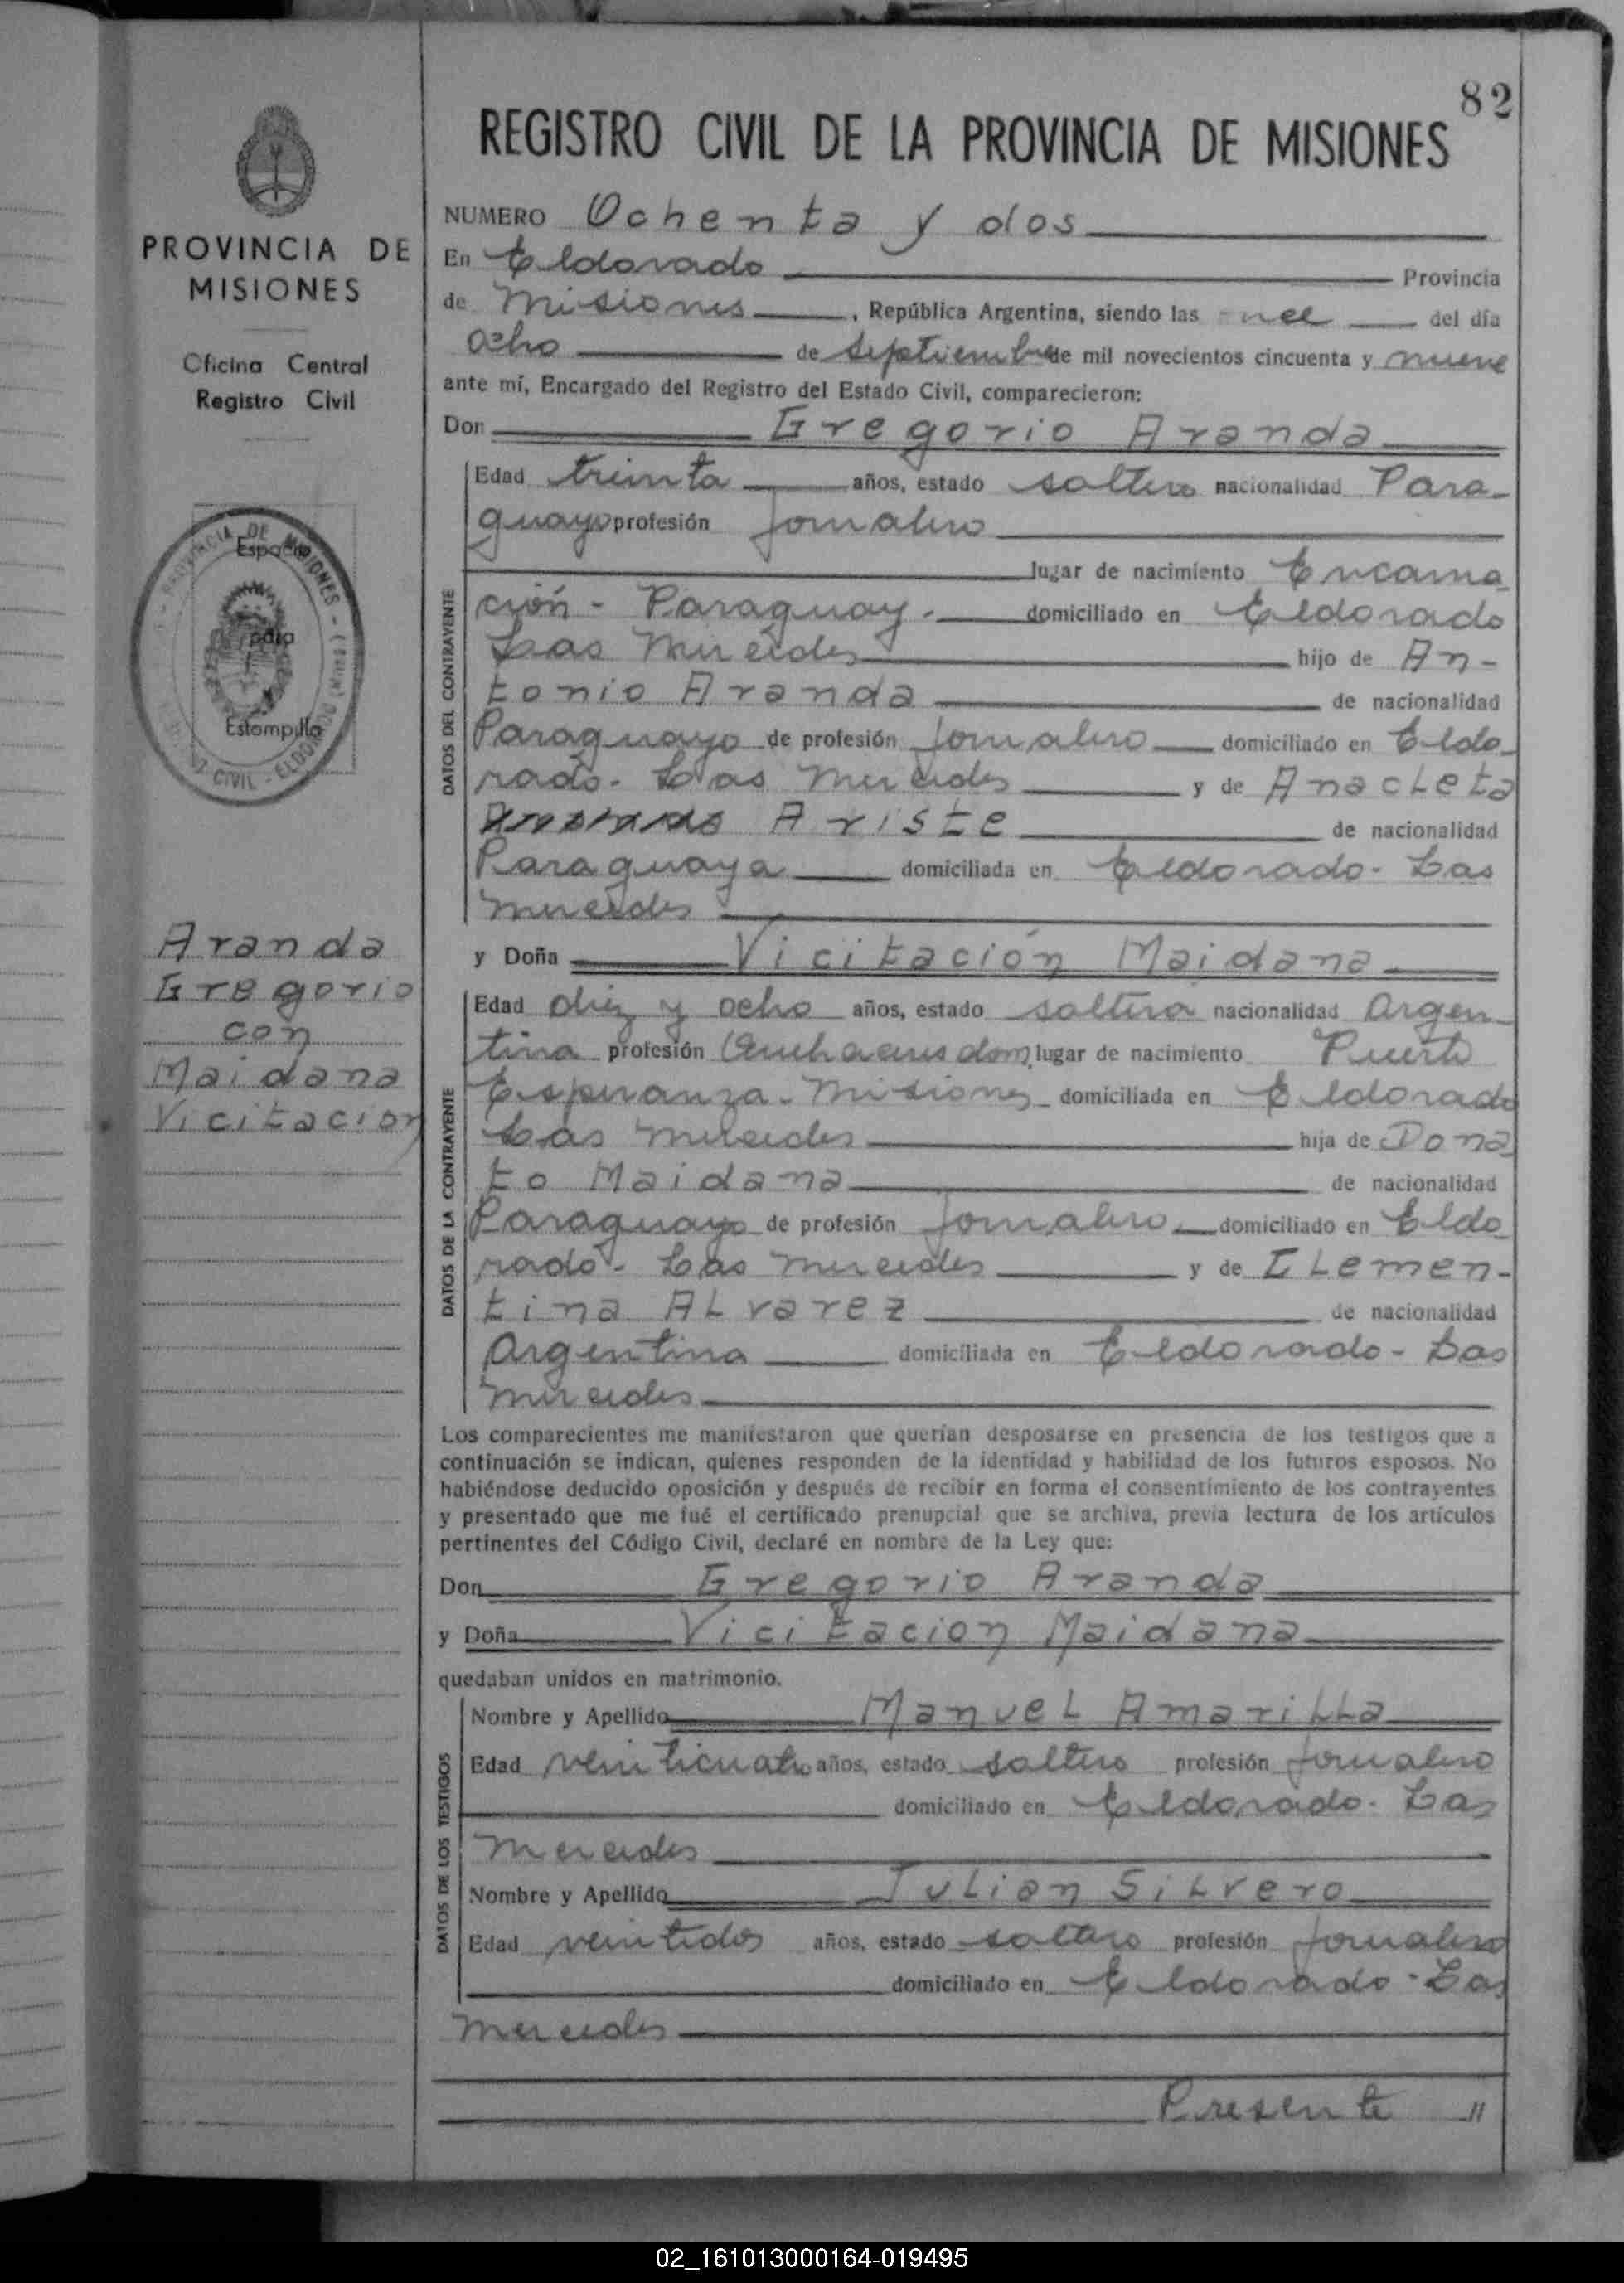 82
REGISTRO CIVIL DE LA PROVINCIA DE MISIONES
PROVINCIA DE
MISIONES
Oficina Central
Registro Civil
PROVINCIA DE MISIONES
Espacio
para
Estampilla
CIVIL - ELDORADO
Aranda
Gregorio
con
Maidana
Vicitacion
NUMERO Ochenta y dos
En Eldorado Provincia
de Misiones, República Argentina, siendo las del día
ocho de septiembre de mil novecientos cincuenta y nueve
ante mí, Encargado del Registro del Estado Civil, comparecieron:
Don Gregorio Aranda
DATOS DEL CONTRAYENTE
Edad treinta años, estado soltero nacionalidad Para-
guayo profesión Jornalero
lugar de nacimiento Encarna
ción - Paraguay. domiciliado en Eldorado
Las Mercedes hijo de An-
tonio Aranda de nacionalidad
Paraguayo de profesión Jornalero domiciliado en Eldo-
rado - Las Mercedes y de Anacleta
Ariste de nacionalidad
Paraguaya domiciliada en Eldorado - Las
Mercedes
y Doña Vicitación Maidana
DATOS DE LA CONTRAYENTE
Edad diez y ocho años, estado soltera nacionalidad Argen-
tina profesión lugar de nacimiento Puerto
Esperanza - Misiones domiciliada en Eldorado
Las Mercedes hija de Dona
to Maidana de nacionalidad
Paraguayo de profesión Jornalero domiciliado en Eldo-
rado - Las Mercedes y de CLemen-
tina ALvarez de nacionalidad
Argentina domiciliada en Eldorado - Las
Mercedes
Los comparecientes me manifestaron que querían desposarse en presencia de los testigos que a
continuación se indican, quienes responden de la identidad y habilidad de los futuros esposos. No
habiéndose deducido oposición y después de recibir en forma el consentimiento de los contrayentes
y presentado que me fué el certificado prenupcial que se archiva, previa lectura de los artículos
pertinentes del Código Civil, declaré en nombre de la Ley que:
Don Gregorio Aranda
y Doña Vicitacion Maidana
quedaban unidos en matrimonio.
DATOS DE LOS TESTIGOS
Nombre y Apellido ManueL AmariLLa
Edad veinticuatro años, estado soltero profesión Jornalero
domiciliado en Eldorado - Las
Mercedes
Nombre y Apellido JuLian SiLvero
Edad veintidos años, estado soltero profesión Jornalero
domiciliado en Eldorado - Las
Mercedes
Presente //
02_161013000164-019495